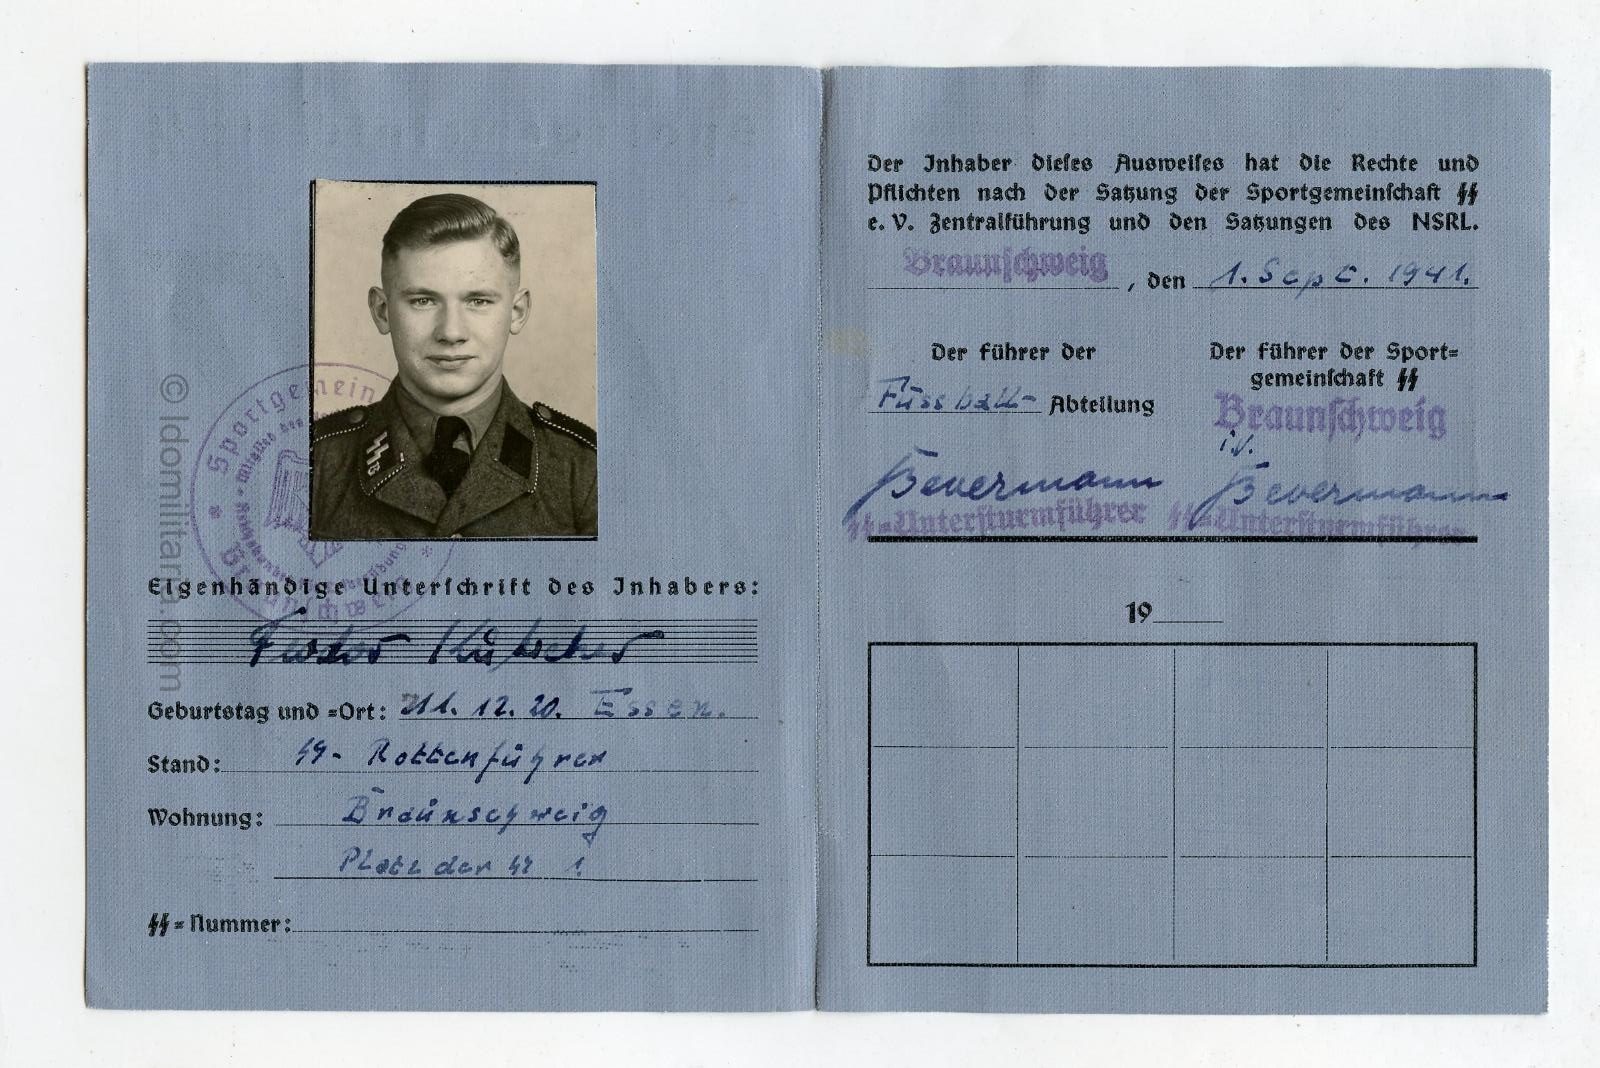 Sportgemein
Mitglied des
Eigenhändige Unterschrift des Inhabers:
Geburtstag und =Ort: 11. 12. 20. Essen.
Stand: SS- Rottenführer
Wohnung: Braunschweig
Platz der SS 1
SS=Nummer:
© Idomilitaria.com
Der Inhaber dieses Ausweises hat die Rechte und
Pflichten nach der Satzung der Sportgemeinschaft SS
e. V. Zentralführung und den Satzungen des NSRL.
Braunschweig, den 1. Sept. 1941.
Der Führer der
Fussball- Abteilung
Bevermann
SS=Untersturmführer
Der Führer der Sport=
gemeinschaft SS
Braunschweig
i.V.
Bevermann
SS=Untersturmführer
19